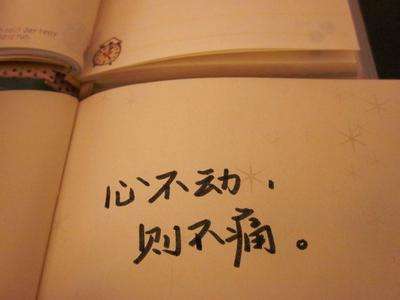 心不动，
则不痛。